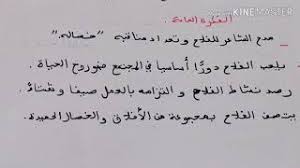 KINEMASTER
الفكرة العامة
مدح الشاعر للفلاح وتعداد مناقبه "خصاله".
يلعب الفلاح دورًا أساسيا في المجتمع فهو روح الحياة.
رصد نشاط الفلاح والتزامه بالعمل صيفا وشتاءً.
يتصف الفلاح بمجموعة من الأخلاق والخصال الحميدة.